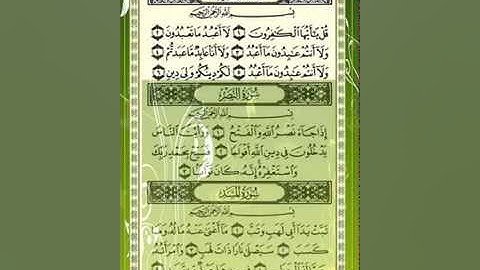 بِسْمِ اللَّهِ الرَّحْمَٰنِ الرَّحِيمِ
قُلْ يَٰٓأَيُّهَا الْكَٰفِرُونَ ١ لَآ أَعْبُدُ مَا تَعْبُدُونَ ٢
وَلَآ أَنتُمْ عَٰبِدُونَ مَآ أَعْبُدُ ٣ وَلَآ أَنَا۠ عَابِدٌ مَّا عَبَدتُّمْ ٤
وَلَآ أَنتُمْ عَٰبِدُونَ مَآ أَعْبُدُ ٥ لَكُمْ دِينُكُمْ وَلِيَ دِينِ ٦
سُورَةُ النَّصْرِ
بِسْمِ اللَّهِ الرَّحْمَٰنِ الرَّحِيمِ
إِذَا جَآءَ نَصْرُ اللَّهِ وَالْفَتْحُ ١ وَرَأَيْتَ النَّاسَ
يَدْخُلُونَ فِي دِينِ اللَّهِ أَفْوَاجًا ٢ فَسَبِّحْ بِحَمْدِ رَبِّكَ
وَاسْتَغْفِرْهُ إِنَّهُ كَانَ تَوَّابًا ٣
سُورَةُ المَسَد
بِسْمِ اللَّهِ الرَّحْمَٰنِ الرَّحِيمِ
تَبَّتْ يَدَآ أَبِي لَهَبٍ وَتَبَّ ١ مَآ أَغْنَىٰ عَنْهُ مَالُهُ وَمَا
كَسَبَ ٢ سَيَصْلَىٰ نَارًا ذَاتَ لَهَبٍ ٣ وَامْرَأَتُهُ